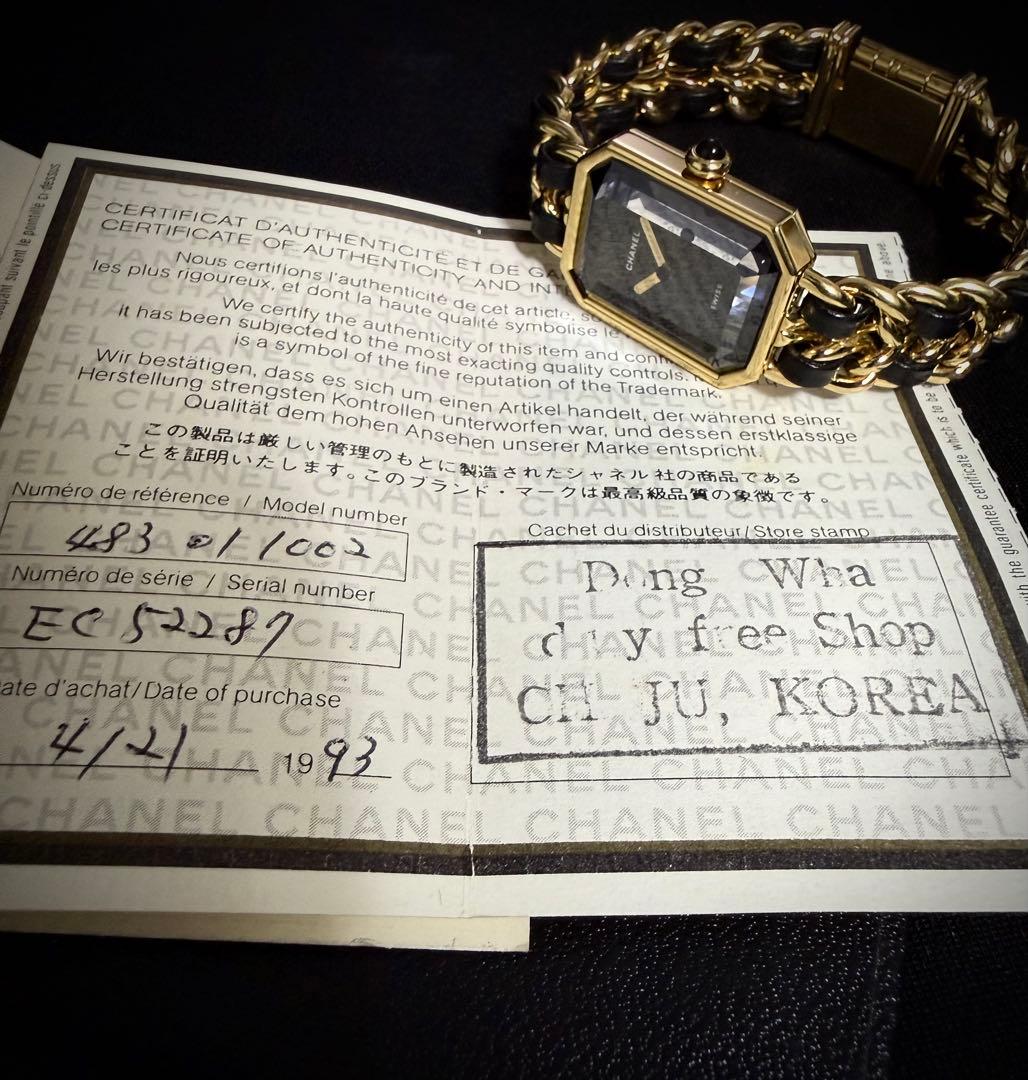 CERTIFICAT D'AUTHENTICITÉ ET DE GA
CERTIFICATE OF AUTHENTICITY AND INTE
Nous certifions l'authenticité de cet article, s
les plus rigoureux, et dont la haute qualité symbolise le
We certify the authenticity of this item and conf
it has been subjected to the most exacting quality controls.
is a symbol of the fine reputation of the Trademark.
Wir bestätigen, dass es sich um einen Artikel handelt, der während seiner
Herstellung strengsten Kontrollen unterworfen war, und dessen erstklassige
Qualität dem hohen Ansehen unserer Marke entspricht.
この製品は厳しい管理のもとに製造されたシャネル社の商品である
ことを証明いたします。このブランド・マークは最高級品質の象徴です。
Numéro de référence / Model number
483 011002
Numéro de série / Serial number
EC 52287
ate d'achat/Date of purchase
4/21 1993
Cachet du distributeur/Store stamp
Dong Wha
d y free Shop
CH JU, KOREA
CHANEL
SWISS
oupant suivant le pointillé ci-dessus
ne above.
ith the guarantee certificate which is to be